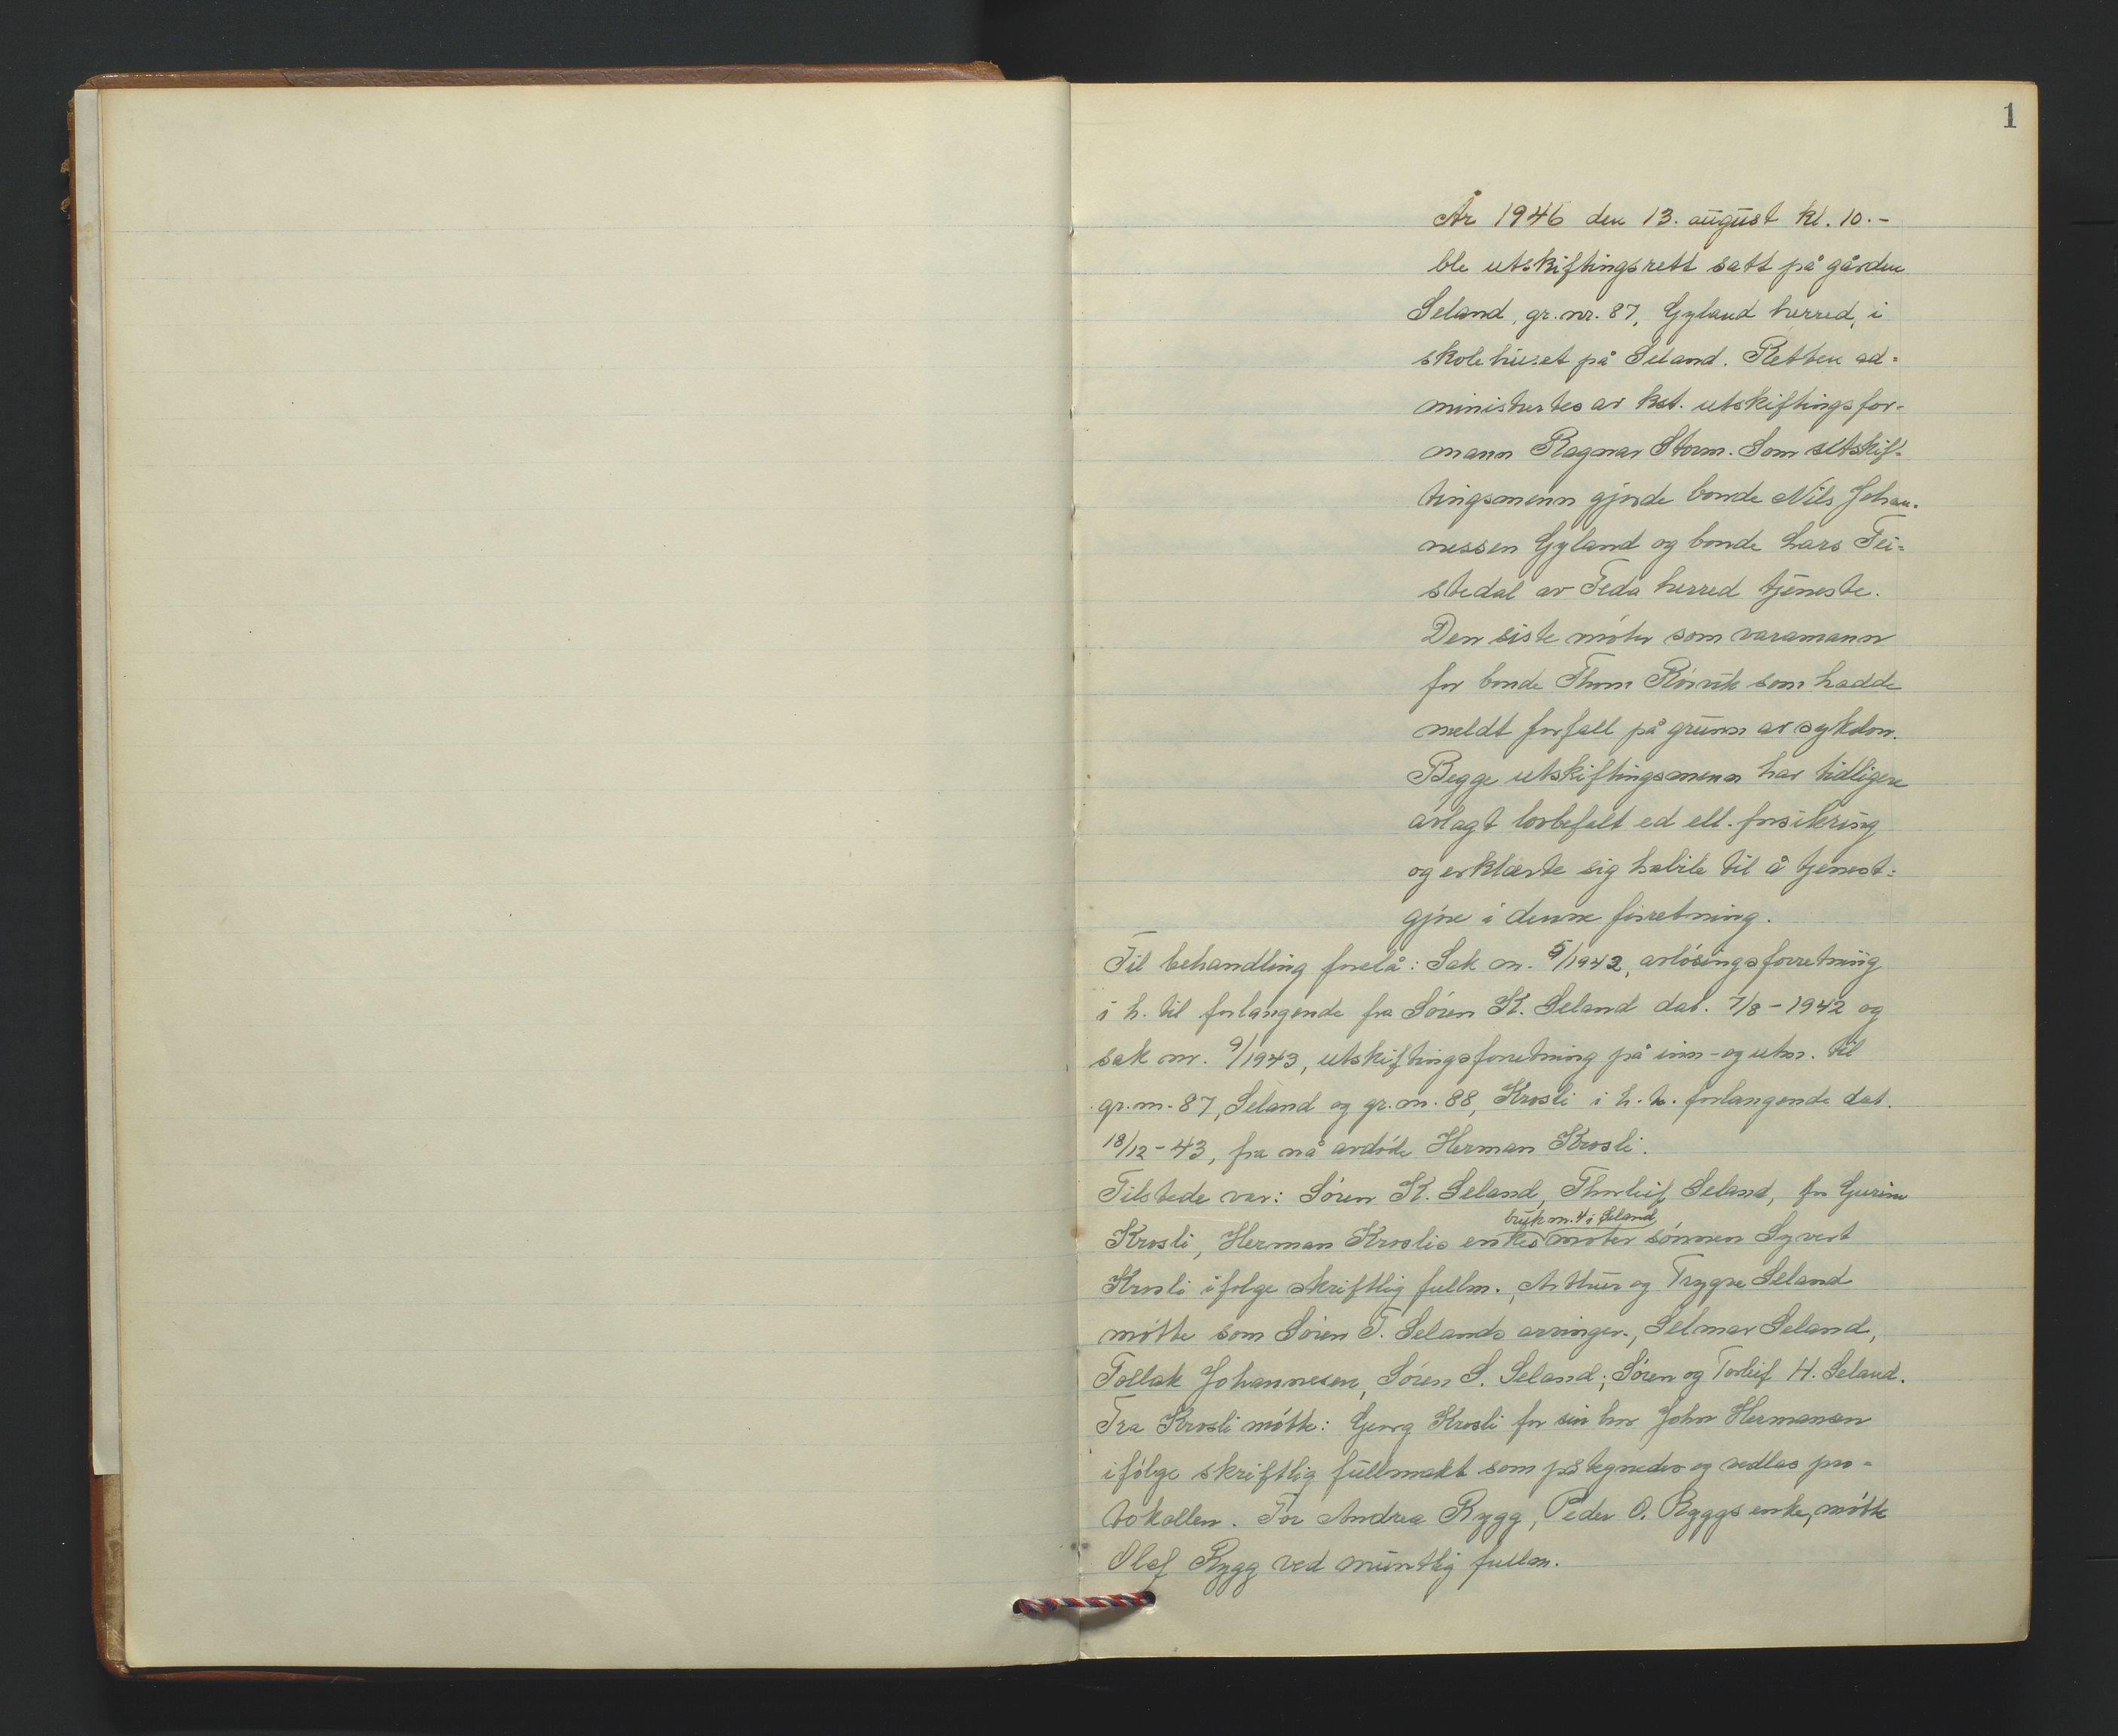 1
År 1946 den 13. august kl. 10.-
ble utskiftingsrett satt på gården
Seland, gr.nr. 87, Gyland herred, i
skolehuset på Seland. Retten ad-
ministertes av kst. utskiftingsfor-
mann Ragnar Storm. Som utskif-
tingsmenn gjorde bonde Nils Johan-
nessen Gyland og bonde Lars Fei-
stedal av Feda herred tjeneste.
Den siste møter som varamann
for bonde Thom Røivik som hadde
meldt forfall på grunn av sykdom.
Begge utskiftingsmenn har tidligere
avlagt lovbefalt ed ell. forsikring
og erklærte sig habile til å tjenest-
gjøre i denne forretning.
Til behandling forelå: Sak nr. 5/1942, avløsingsforretning
i h. til forlangende fra Søren K. Seland dat. 7/8-1942 og
sak nr. 9/1943, utskiftingsforretning på inn- og utm. til
gr.nr. 87, Seland og gr.nr. 88, Krosli i h.t. forlangende dat.
18/12-43, fra nå avdøde Herman Krosli.
Tilstede var: Søren K. Seland, Thorleif Seland, for Gurine
bruk nr. 4 i Seland
Krosli, Herman Kroslis enkes møter sønnen Syvert
Krosli ifølge skriftlig fullm., Arthur og Trygve Seland
møtte som Søren T. Selands arvinger., Selmer Seland,
Tollak Johannesen, Søren S. Seland; Søren og Torleif H. Seland.
Fra Krosli møtte: Georg Krosli for sin bror John Hermansen
ifølge skriftlig fullmakt som påtegnedes og vedlas pro-
tokollen. For Andrea Rygg, Peder O. Ryggs enke, møtte
Olaf Rygg ved muntlig fullm.